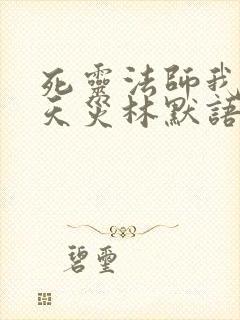 死靈法師我
天災林默語
碧璽